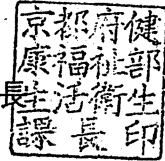 京都府健
康福祉部
生活衛生
課長印
長